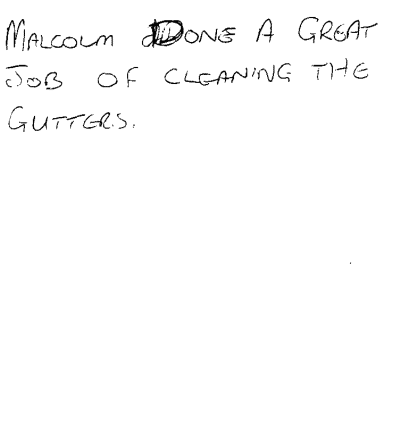 MALCOLM DONE A GREAT
JOB OF CLEANING THE
GUTTERS.